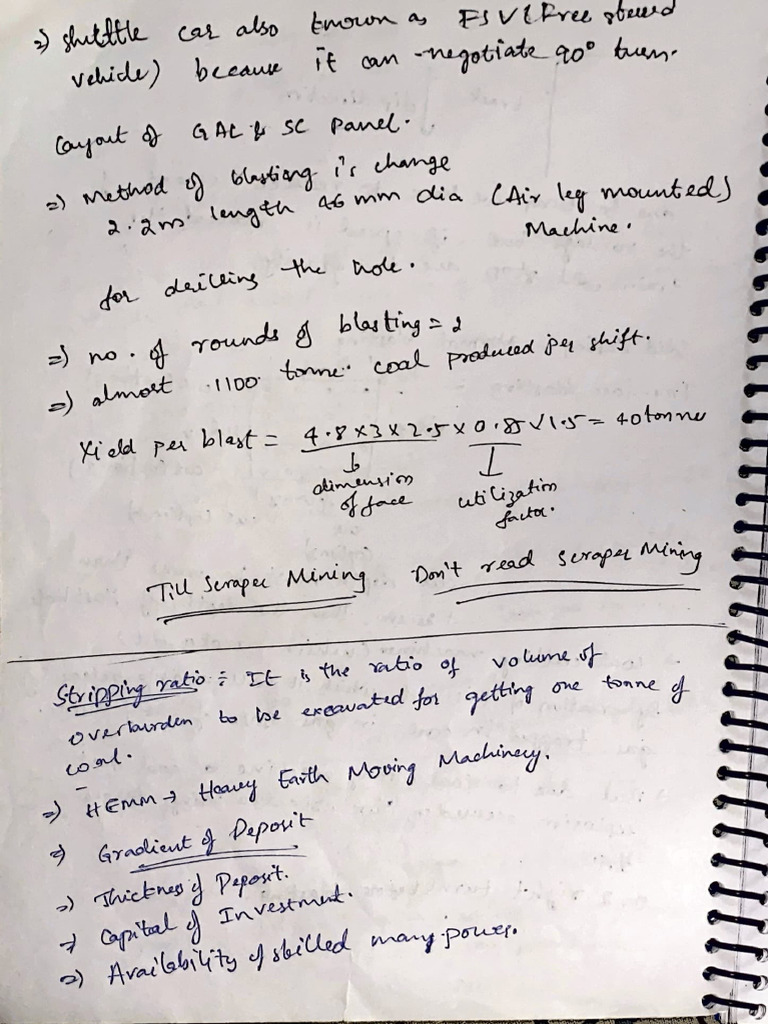 =) shuttle car also known as FSV (Free steered
vehicle) because it can -negotiate 90° turn.
Layout of GAL & SC Panel.
=) Method of blasting is change
2.2m length 46 mm dia (Air leg mounted)
Machine.
for drilling the hole.
=) no. of rounds of blasting = 2
=) almost 1100 tonne coal produced per shift.
Yield per blast = 4.8 x 3 x 2.5 x 0.85 x 1.5 = 40 tonne
dimension
of face
utilization
factor.
Till Scraper Mining Don't read scraper Mining
Stripping ratio : It is the ratio of volume of
overburden to be excavated for getting one tonne of
coal.
=) HEMM → Heavy Earth Moving Machinery.
=) Gradient of Deposit
=) Thickness of Deposit.
=) Capital of Investment.
=) Availability of skilled many power.